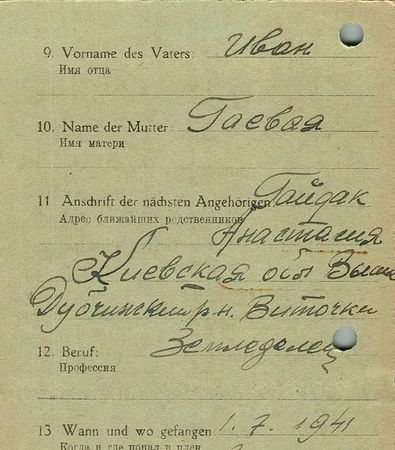 9. Vorname des Vaters: Иван
Имя отца
10. Name der Mutter: Гаевая
Имя матери
11 Anschrift der nächsten Angehörigen Гайдак
Адрес ближайших родственников Анастасия
Киевская обл Выше
Дубочинский р.н. Виточки
12. Beruf: Земледелец
Профессия
13 Wann und wo gefangen 1.7.1941
Когда и где попал в плен